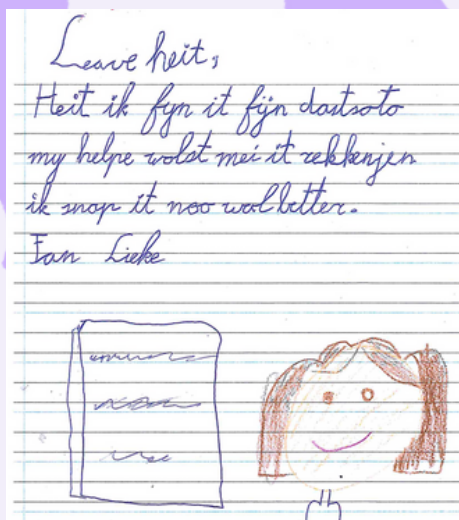 Leave heit,
Heit ik fyn it fijn datsoto
my helpe wolst mei it rekkenjen
ik snap it noo wol better.
Fan Lieke